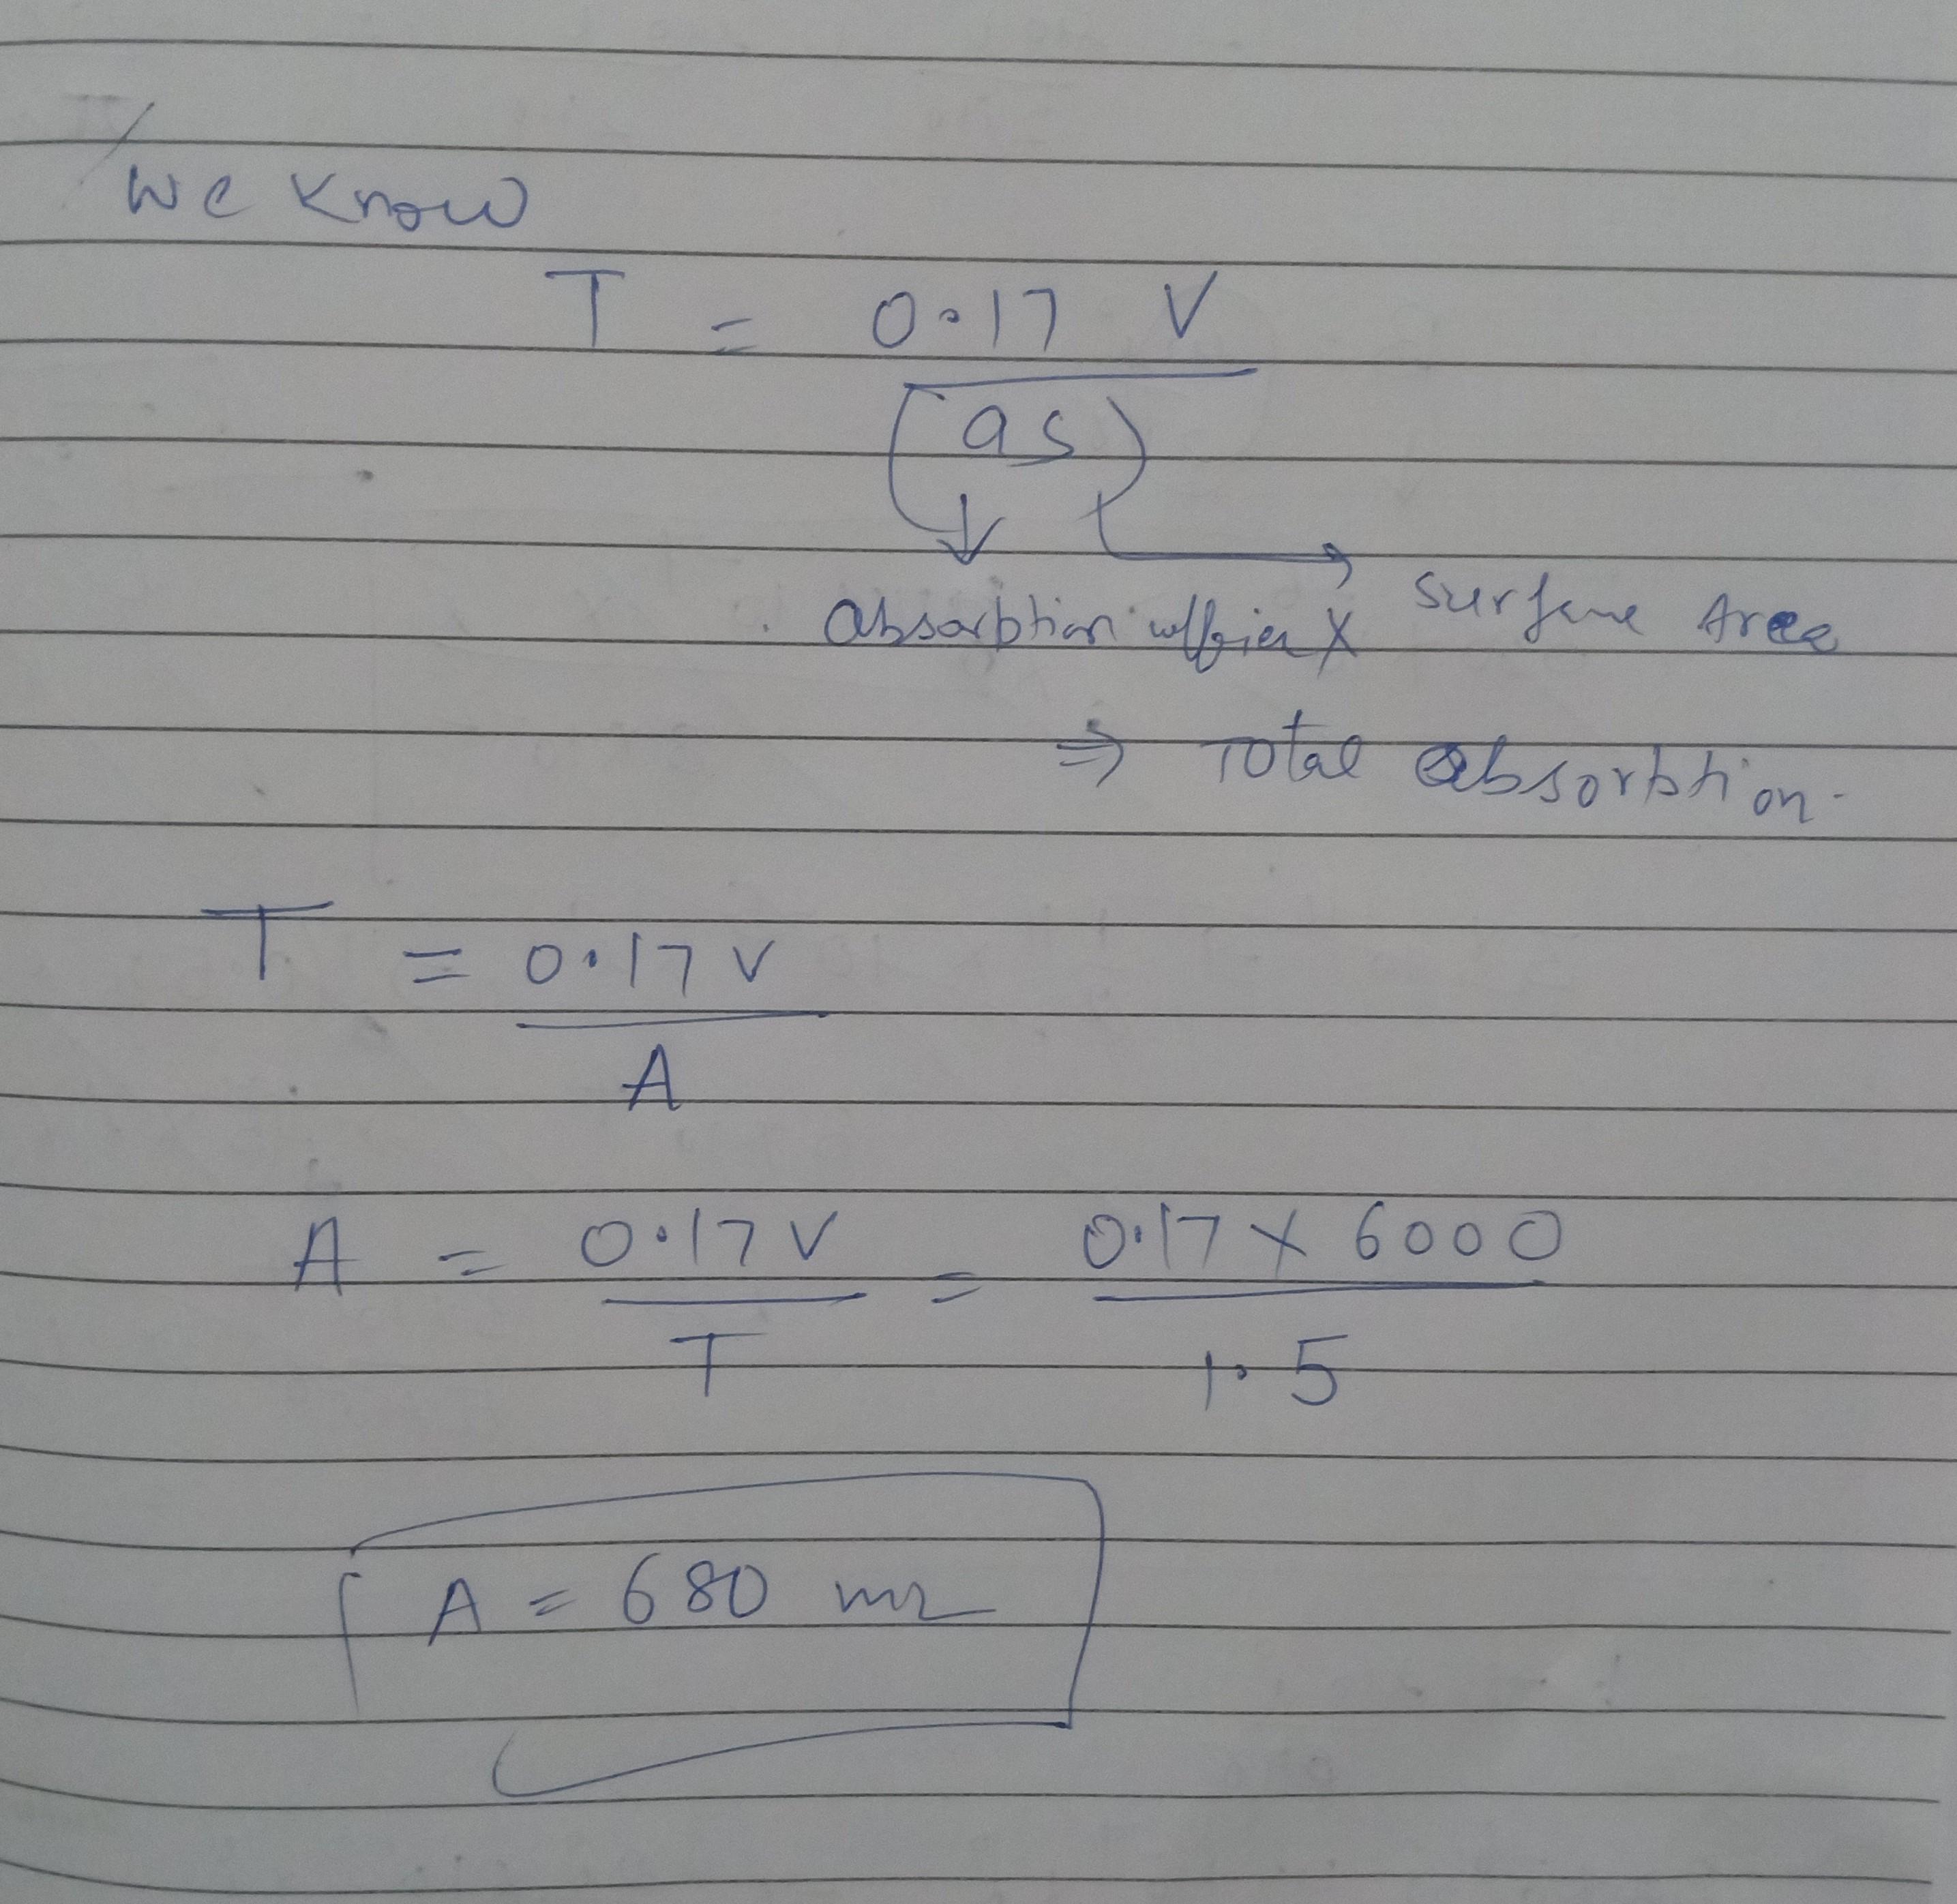 We know
T = 0.17 V
(as)
absorption coefficien X surface Area
⇒ Total absorbtion.
T = 0.17 V
A
A = 0.17 V = 0.17 X 6000
T 1.5
A = 680 m2